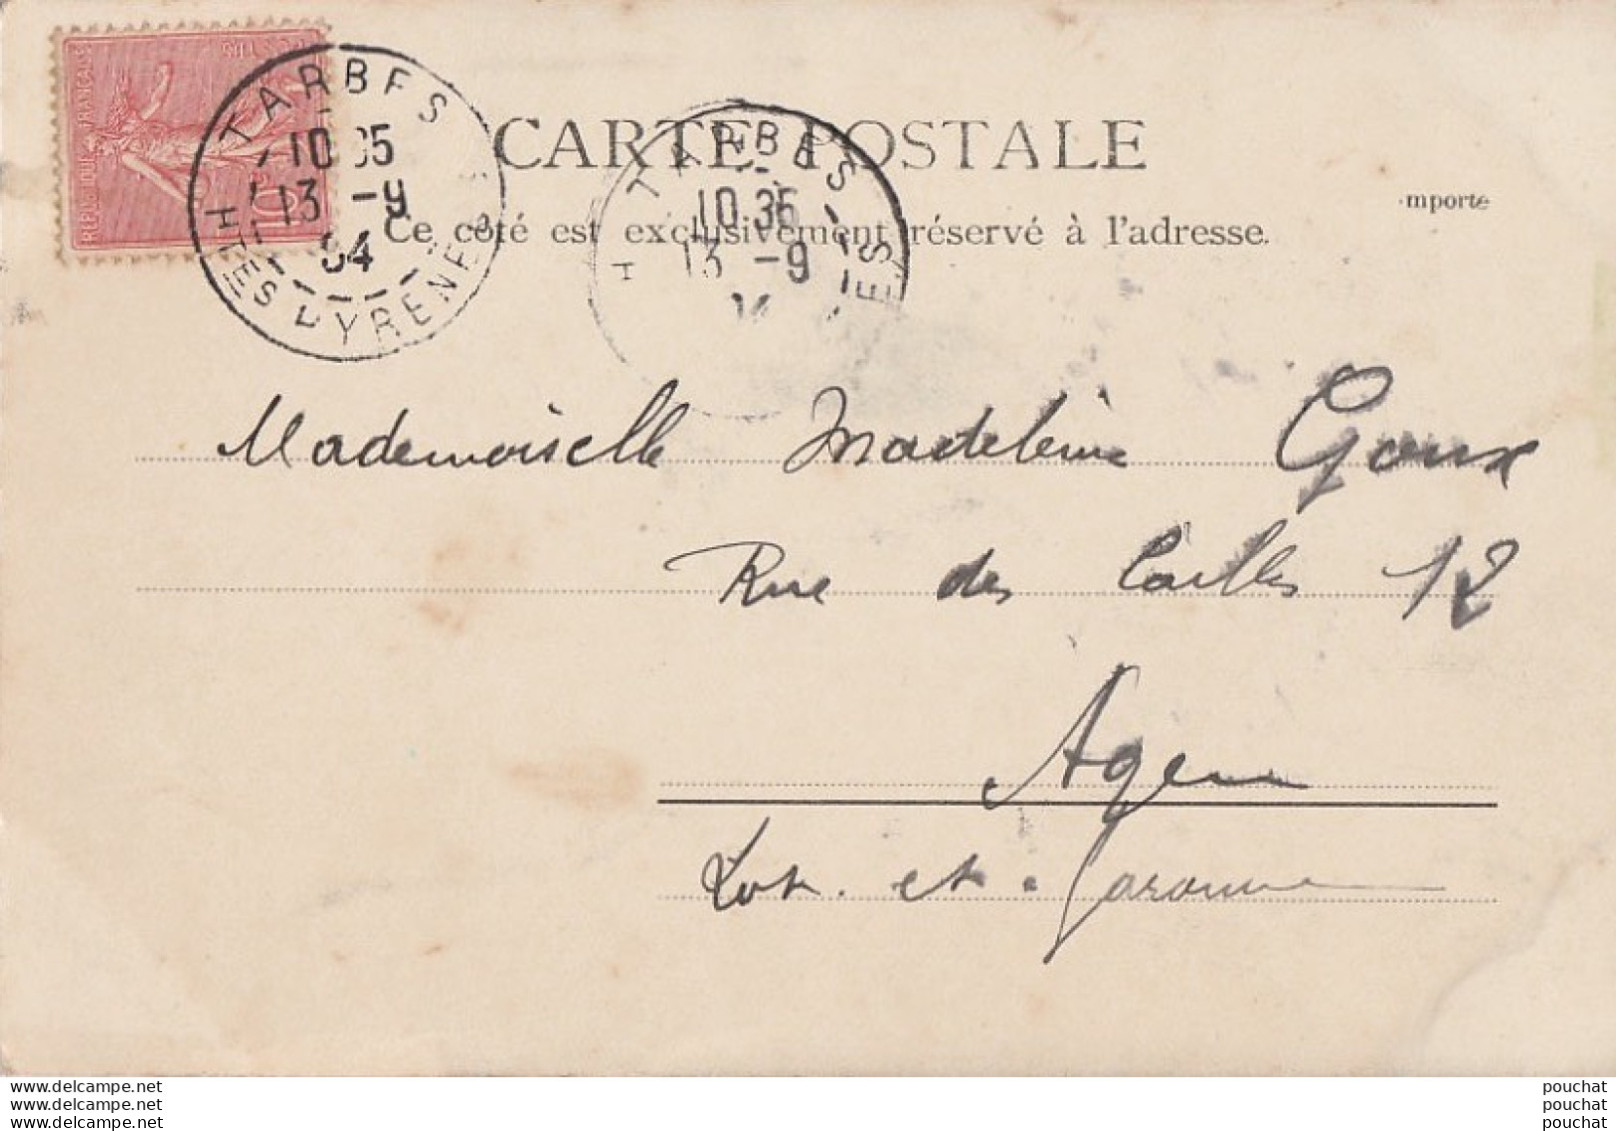 REPUBLIQUE FRANÇAISE
POSTES
10c
TARBES
10 35
13 -9
04
HTES PYRENEES
TARBES
10 35
13 -9
H
ES
CARTE POSTALE
Ce côté est exclusivement réservé à l'adresse.
importé
Mademoiselle Madeleine Goux
Rue des 12
Agen
Lot. et. Garonne
www.delcampe.net
www.delcampe.net
www.delcampe.net
pouchat
pouchat
pouchat